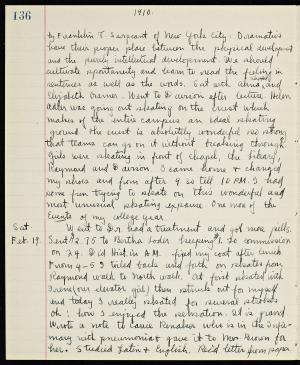 136
1910.
by Franklin T. Sargent of New York City. Dramatics
have their proper place between the physical development
and the purely intellectual development. We should
cultivate spontaneity and learn to read the feeling in
sentences as well as the words. Sat with Anna and
Elizabeth Cramer. Went to Davison after lecture. Helen
Adler was going out skating on the crust which
makes of the entire campus an ideal skating
ground. The crust is absolutely wonderful so strong
that teams can go on it without breaking through
Girls were skating in front of chapel, the library,
Raymond and Davison. I came home + changed
my shoes and from after 9 so till 10 P.M. I had
some fun trying to skate on this wonderful and
most unusual skating expanse. One more of the
Events of my college year.
Sat.
Feb. 19.
Went to Dr. had a treatment and got more pills.
Sent $2.75 to Bertha Loder keeping $1.
on 24. Did Hist. in A.M. fixed my coat after lunch
From 4-5 I sailed back and forth on skates from
Raymond walk to North walk. At first skated with
Irene (our elevator girl) then struck out for myself
and today I really skated for several strokes
oh! how I enjoyed the sensation. It is grand
Wrote a note to Carrie who is in the Infir-
mary with pneumonia + gave it to Mrs. Brown for
her. Studied Latin + English. Rec'd letter from papa